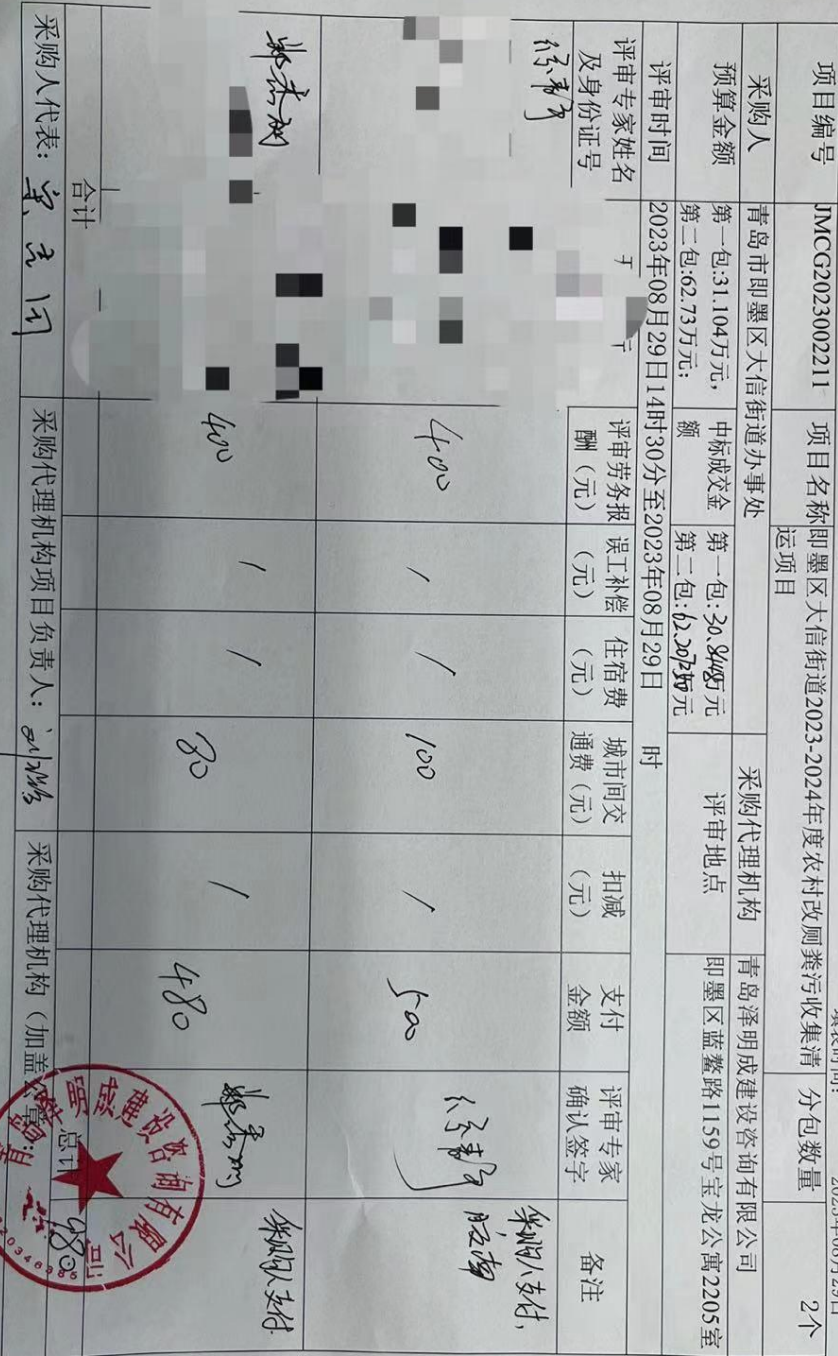 2023年08月29日
项目编号 JMCG2023002211 项目名称 即墨区大信街道2023-2024年度农村改厕粪污收集清运项目 分包数量 2个
采购人 青岛市即墨区大信街道办事处 采购代理机构 青岛泽明成建设咨询有限公司
预算金额 第一包:31.104万元, 第二包:62.73万元; 中标成交金额 第一包: 30.848万元 第二包: 万元 评审地点 即墨区蓝鳌路1159号宝龙公寓2205室
评审时间 2023年08月29日14时30分至2023年08月29日 时
评审专家姓名及身份证号 评审劳务报酬（元） 误工补偿（元） 住宿费（元） 城市间交通费（元） 扣减（元） 支付金额 评审专家确认签字 备注
400 / / 100 / 500 采购人支付,
400 / / 80 / 480 采购人支付
合计 总计 980
采购人代表: 采购代理机构项目负责人: 采购代理机构（加盖公章）: